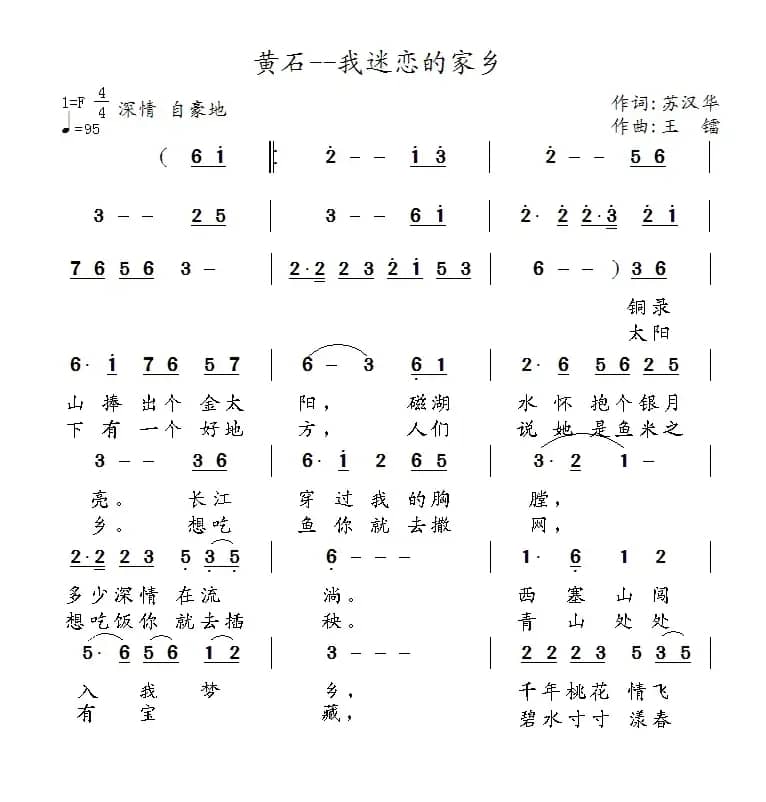 黄石--我迷恋的家乡
1=F 4/4 深情 自豪地 作词:苏汉华
♩=95 作曲:王 镭
( 6 i̇ |: 2̇ - - i̇ 3̇ | 2̇ - - 5 6 |
3 - - 2 5 | 3 - - 6 i̇ | 2̇· 2̇ 2̇·3̇ 2̇ i̇ |
7 6 5 6 3 - | 2·2 2 3 2̇ i̇ 5 3 | 6 - - ) 3 6 |
铜录
太阳
6· i̇ 7 6 5 7 | 6 - 3 6̣ 1 | 2· 6 5 6 2 5 |
山 捧 出 个 金 太 阳, 磁湖 水 怀 抱个 银月
下 有 一 个 好 地 方, 人们 说 她 是鱼 米之
3 - - 3 6 | 6· i̇ 2 6 5 | 3· 2 1 - |
亮。 长江 穿 过 我 的胸 膛,
乡。 想吃 鱼 你 就 去撒 网,
2·2 2 3 5̣ 3̣ 5̣ | 6̣ - - - | 1· 6̣ 1 2 |
多少深情 在流 淌。 西 塞 山 闯
想吃饭你 就去插 秧。 青 山 处 处
5· 6 5 6 1 2 | 3 - - - | 2 2 2 3 5 3 5 |
入 我 梦 乡, 千年桃花 情飞
有 宝 藏, 碧水寸寸 漾春